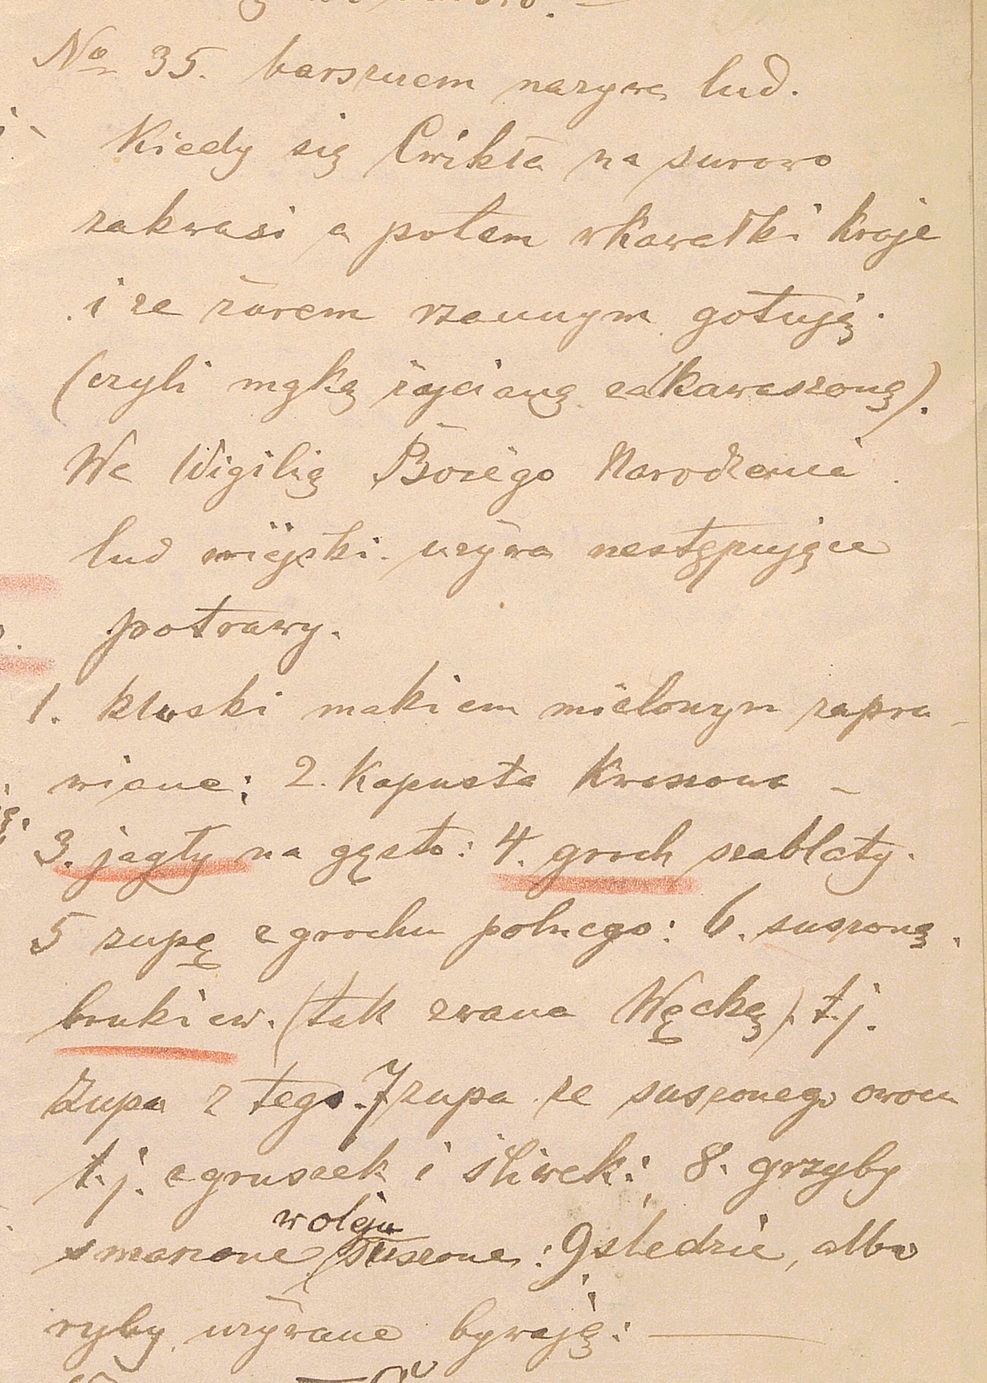 No 35. barszczem nazywa lud.
Kiedy się Cwikła na surowo
zakwasi a potem wkawałki kraje
i ze żurem rżannym gotują.
(czyli mąką życianą zakawaszoną).
We Wigilią Bożego Narodzenia
lud wiejski używa następujące
potrawy.
1. kluski makiem mielonym zapra-
wiane; 2. Kapusta Kwaszona -
3. jagły na gęsto: 4. groch szablaty.
5 zupę z grochu polnego: 6. suszoną
brukiew. (tak zwana Wącką) t.j.
Zupa z tego. 7 zupa ze suszonego owocu
t.j. z gruszek i śliwek; 8. grzyby
w oleju
smarzone (suszone: 9 śledzie, albo
ryby używane bywają: